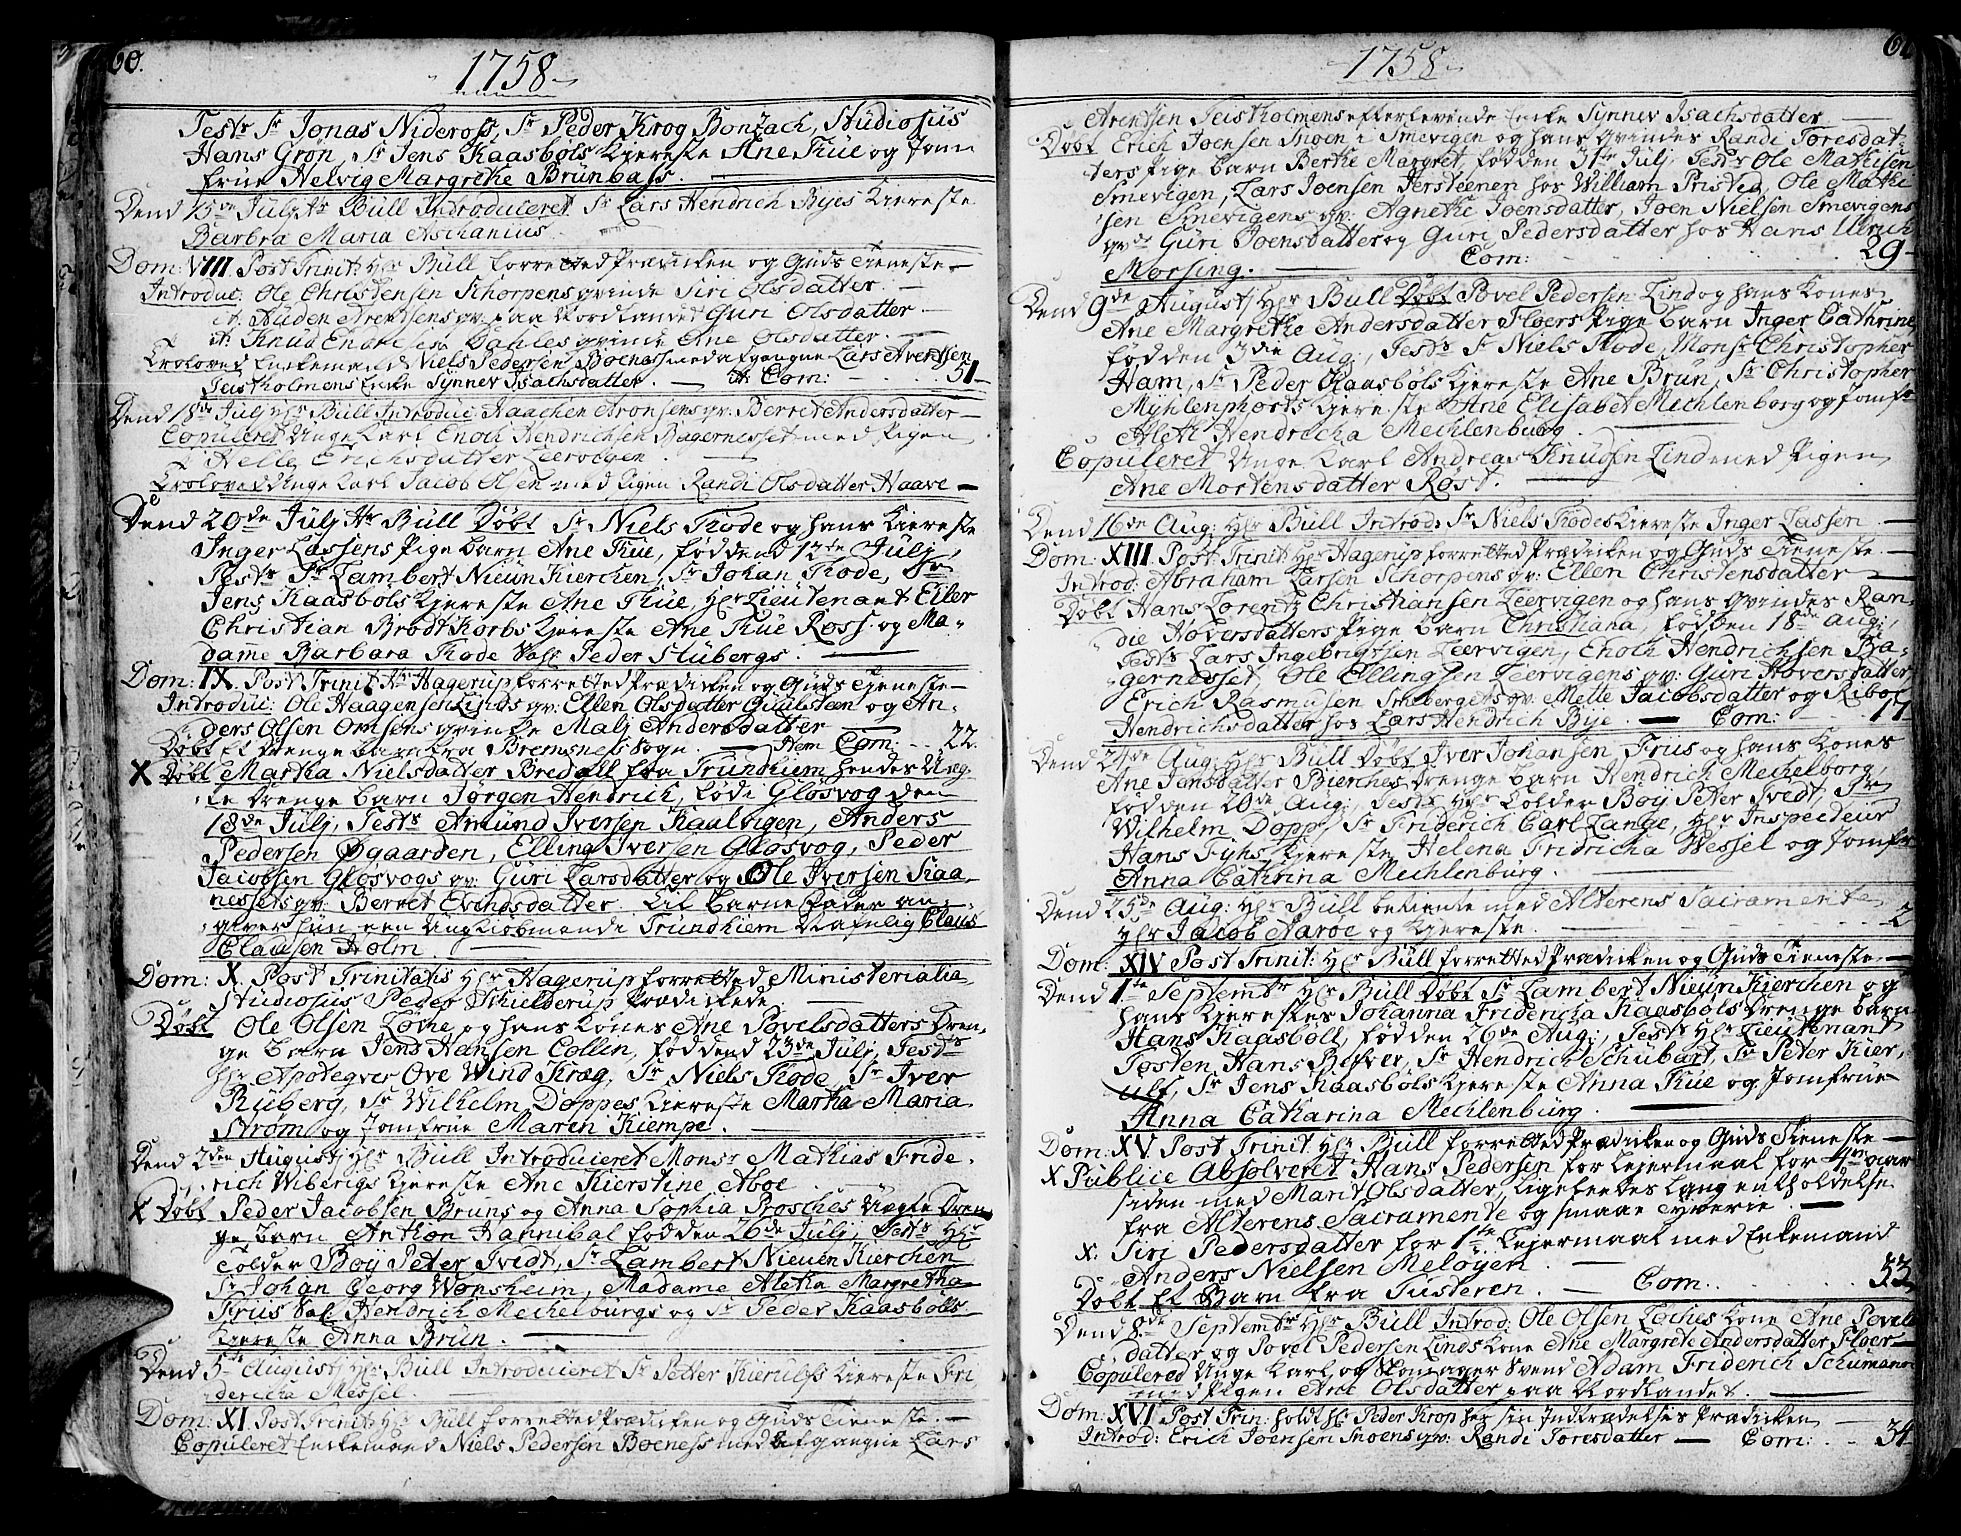 60.
1758
Test: Sr Jonas Nideross, Sr Peder Krog Bonsach, Studiosus
Hans Grøn, Sr Jens Kaasbøls Kiereste Ane Kue og Jom
frue Helvig Margrethe Brünbass.
Dend 15de Julj Hr Büll Introduceret Sr Lars Hendrich Byes Kiereste
Barbra Maria Aschanius
Dom: VIII. Post Trinit: Hr Büll forretted Prædicken og Guds Tieneste
Introduc: Ole Christensen Schorpens qvinde Siri Olsdatter.
it: Auden Arentsens qv: paa Nordlandet Guri Olsdatter
it: Knud Dahles qvinde Ane Olsdatter.
Troloved Enkemand Niels Pedersen Boeness med afgangne Lars Arentsen
Teistholmens Enke Synnev Isachsdatter. — It: Com: — 51
Dend 18de Julj Hr Büll Introduc: Haachen Aronsens qv: Berret Andersdatter
Copuleret Unge Karl Enoch Hendrichsen Bagernesset med Pigen
Helle Erichsdatter Leervogen
Troloved Unge Karl Jacob Olsen med Pigen Randi Olsdatter Haave
Dend 20de Julj Hr Büll Døbt Sr Niels Kode og hans Kiereste
Inger Lassens Pige barn Ane Kue, fød dend 13de Julj,
Test: Sr Lambert Nieün Kierchen, Sr Johan Kode, Sr
Jens Kaasbøls Kiereste Ane Kue, Hr Lieutenant Eiler
Christian Brodtkorbs Kiereste Ane Kue Ross. og Ma-
dame Barbara Kode Sal: Peder Stubergs.
Dom: IX. Post Trinit Hr Hagerup forretted Prædicken og Guds Tieneste
Introduc: Ole Haagensen Linds qv: Ellen Olsdatter Qvalstan og An-
ders Olsen Ornsens qvinde Malj Andersdatter
Døbt Et drenge barn fra Bremsnes Sogn. — Item Com: 22.
X Døbt Martha Nielsdatter Bredall fra Trundhiem hendes Uæg-
te drenge barn Jørgen Hendrich, fød i Glosvog den
18de Julj, Test: Amund Iversen Kaalvigen, Anders
Pedersen Øgaarden, Elling Iversen Glosvog, Peder
Jacobsen Glosvogs qv: Guri Larsdatter og Ole Iversen Kaa-
nessets qv: Berret Evindsdatter. Til Barne Fader an-
giver hun een Ung Kiobmand i Trundhiem Nafnlig Claus
Clausen Holm.
Dom: X. Post Trinitatis Hr Hagerup forretted Ministerialia
Studiosus Peder Schielderup Prædickede.
Døbt Ole Olsen Løche og hans Kones Ane Povelsdatters Dren-
ge barn Jens Hansen Collin, fød dend 23de Julj, Test:
Hr Apoteqver Ove Wind Krag, Sr Niels Kode, Sr Iver
Ruberg, Sr Wilhelm Doppes Kiereste Martha Maria
Strøm og Jomfrue Maren Kiempe.
Dend 2den Augustj Hr Büll Introduceret Monsr Mathias Fride-
rich Wibergs Kiereste Ane Kierstine Aboe
X Døbt Peder Jacobsen Bruns og Anna Sophia Brosches Uægte Dren-
ge barn Anthon Hannibal fødden 26de Julj, Test: Hr
Tolder Boÿ Peter Tvedt, Sr Lambert Nieuen Kierchen
Sr Johan Georg Wonsheim, Madame Aletha Margretha
Friis Sal: Hendrich Mechelburgs og Sr Peder Kaasbølls
Kiereste Anna Brün.
Dend 5te Augustj Hr Büll Introduceret Sr Petter Kierulfs Kiereste Fri-
dericha Messel.
Dom: XI. Post Trinit: Hr Büll forretted Prædicken og Guds Tieneste.
Copuleret Enckemand Niels Pedersen Boeness med afgangne Lars
61
1758
Arentsen Teistholmens efterlevende Enke Synnev Isachsdatter
Døbt Erich Joensen Inoen i Smevigen og hans qvindes Randi Toresdat-
ters Pige barn Berthe Margret, fødden 31te Julj Test: Ole Mathisen
Smevigen, Lars Joensen Jersteenen hos William Pristed, Ole Mathi
sen Smevigens qv: Agnethe Joensdatter, Joen Nielsen Smevigens
qv: Guri Joensdatter og Guri Pedersdatter hos Hans Ulrich
Morsing. — Com: 29
Dend 9de Augustj Hr Büll Døbt Povel Pedersen Lind og hans Kones
Ane Margrethe Andersdatter Floers Pige barn Inger Cathrine
fødden 3die Aug:, Test: Sr Niels Kode, Monsr Christopher
Ham, Sr Peder Kaasbøls Kiereste Ane Brün, Sr Christopher
Mÿhlenphorts Kiereste Ane Elisabet Mechlenborg og Jomfr
Aleth Hendricha Mechlenburg.
Copuleret Unge Karl Andreas Knudsen Lind med Pigen
Ane Mortensdatter Røst.
Dend 16de Aug: Hr Büll Introd: Sr Niels Kodes Kiereste Inger Lassen
Dom: XIII. Post Trinit: Hr Hagerup forretted Prædicken og Guds Tieneste.
Introd: Abraham Larsen Schorpens qv: Ellen Christensdatter
Døbt Hans Lorentz Christiansen Leervigen og hans qvindes Ran-
die Hoversdatters Pige barn Christiana, fødden 18de Aug:,
Test: Lars Ingebrigtsen Leervigen, Enoch Hendrichsen Ba-
gernesset, Ole Ellingsen Leervigens qv: Guri Hoversdatter,
Erich Rasmusen qv: Mette Jacobsdatter og Riboe
Hendrichsdatter hos Lars Hendrich Bye. — Com: 17
Dend 24de Aug: Hr Büll Døbt Iver Johansen Friis og hans Kones
Ane Jensdatter Bierches Drenge barn Hendrich Mechelborg,
fødden 20de Aug:, Test: Hr Tolder Boÿ Peter Tvedt, Sr
Wilhelm Dopp, Sr Friderich Carl Lange, Hr Inspecteur
Hans Fÿhs Kiereste Helena Fridricha Wessel og Jomfr
Anna Cathrina Mechlenburg.
Dend 25de Aug: Hr Büll betiente med Alterens Sacramente
Hr Jacob Naroe og Kiereste. 2
Dom: XIV Post Trinit: Hr Büll forretted Prædicken og Guds Tieneste
Dend 1te Septembr Hr Büll Døbt Sr Lambert Nieün Kierchen og
hans Kierestes Johanna Fridericha Kaasbøls Drenge barn
Hans Kaasbøll, fødden 26de Aug:, Test: Hr Lieutenant
Tosten Hans Besver, Sr Hendrich Schubart, Sr Peter Kier-
ulf, Sr Jens Kaasbøls Kiereste Anna Kue og Jomfrue
Anna Catharina Mechlenburg.
Dom: XV Post Trinit: Hr Büll forretted Prædicken og Guds Tieneste
X Publice Absolveret Hans Pedersen for Leiermaal for 4re aar
siden med Marit Olsdatter, Ligeledes Lang entholdelse
fra Alterens Sacramente og smaae Tyverie.
X. Siri Pedersdatter for 1te Leiermaal med Enkemand
Anders Nielsen Meløyen.
Døbt Et Barn fra Tusteren. — Com: 33
Dend 8de Septembr Hr Büll Introd: Ole Olsen Løches Kone Ane Povels
datter og Povel Pedersen Linds Kone Ane Margrete Andersdatter Floer
Copulered Unge Karl og Skomager Svend Adam Friderich Schuman
med Pigen Ane Olsdatter paa Nordlandet.
Dom: XVI Post Trin: holdt Hr Peder Krop her sin Indtrædelses Prædicken
Introd: Erich Joensen Inoens qv: Randi Toresdatter — Com: 34